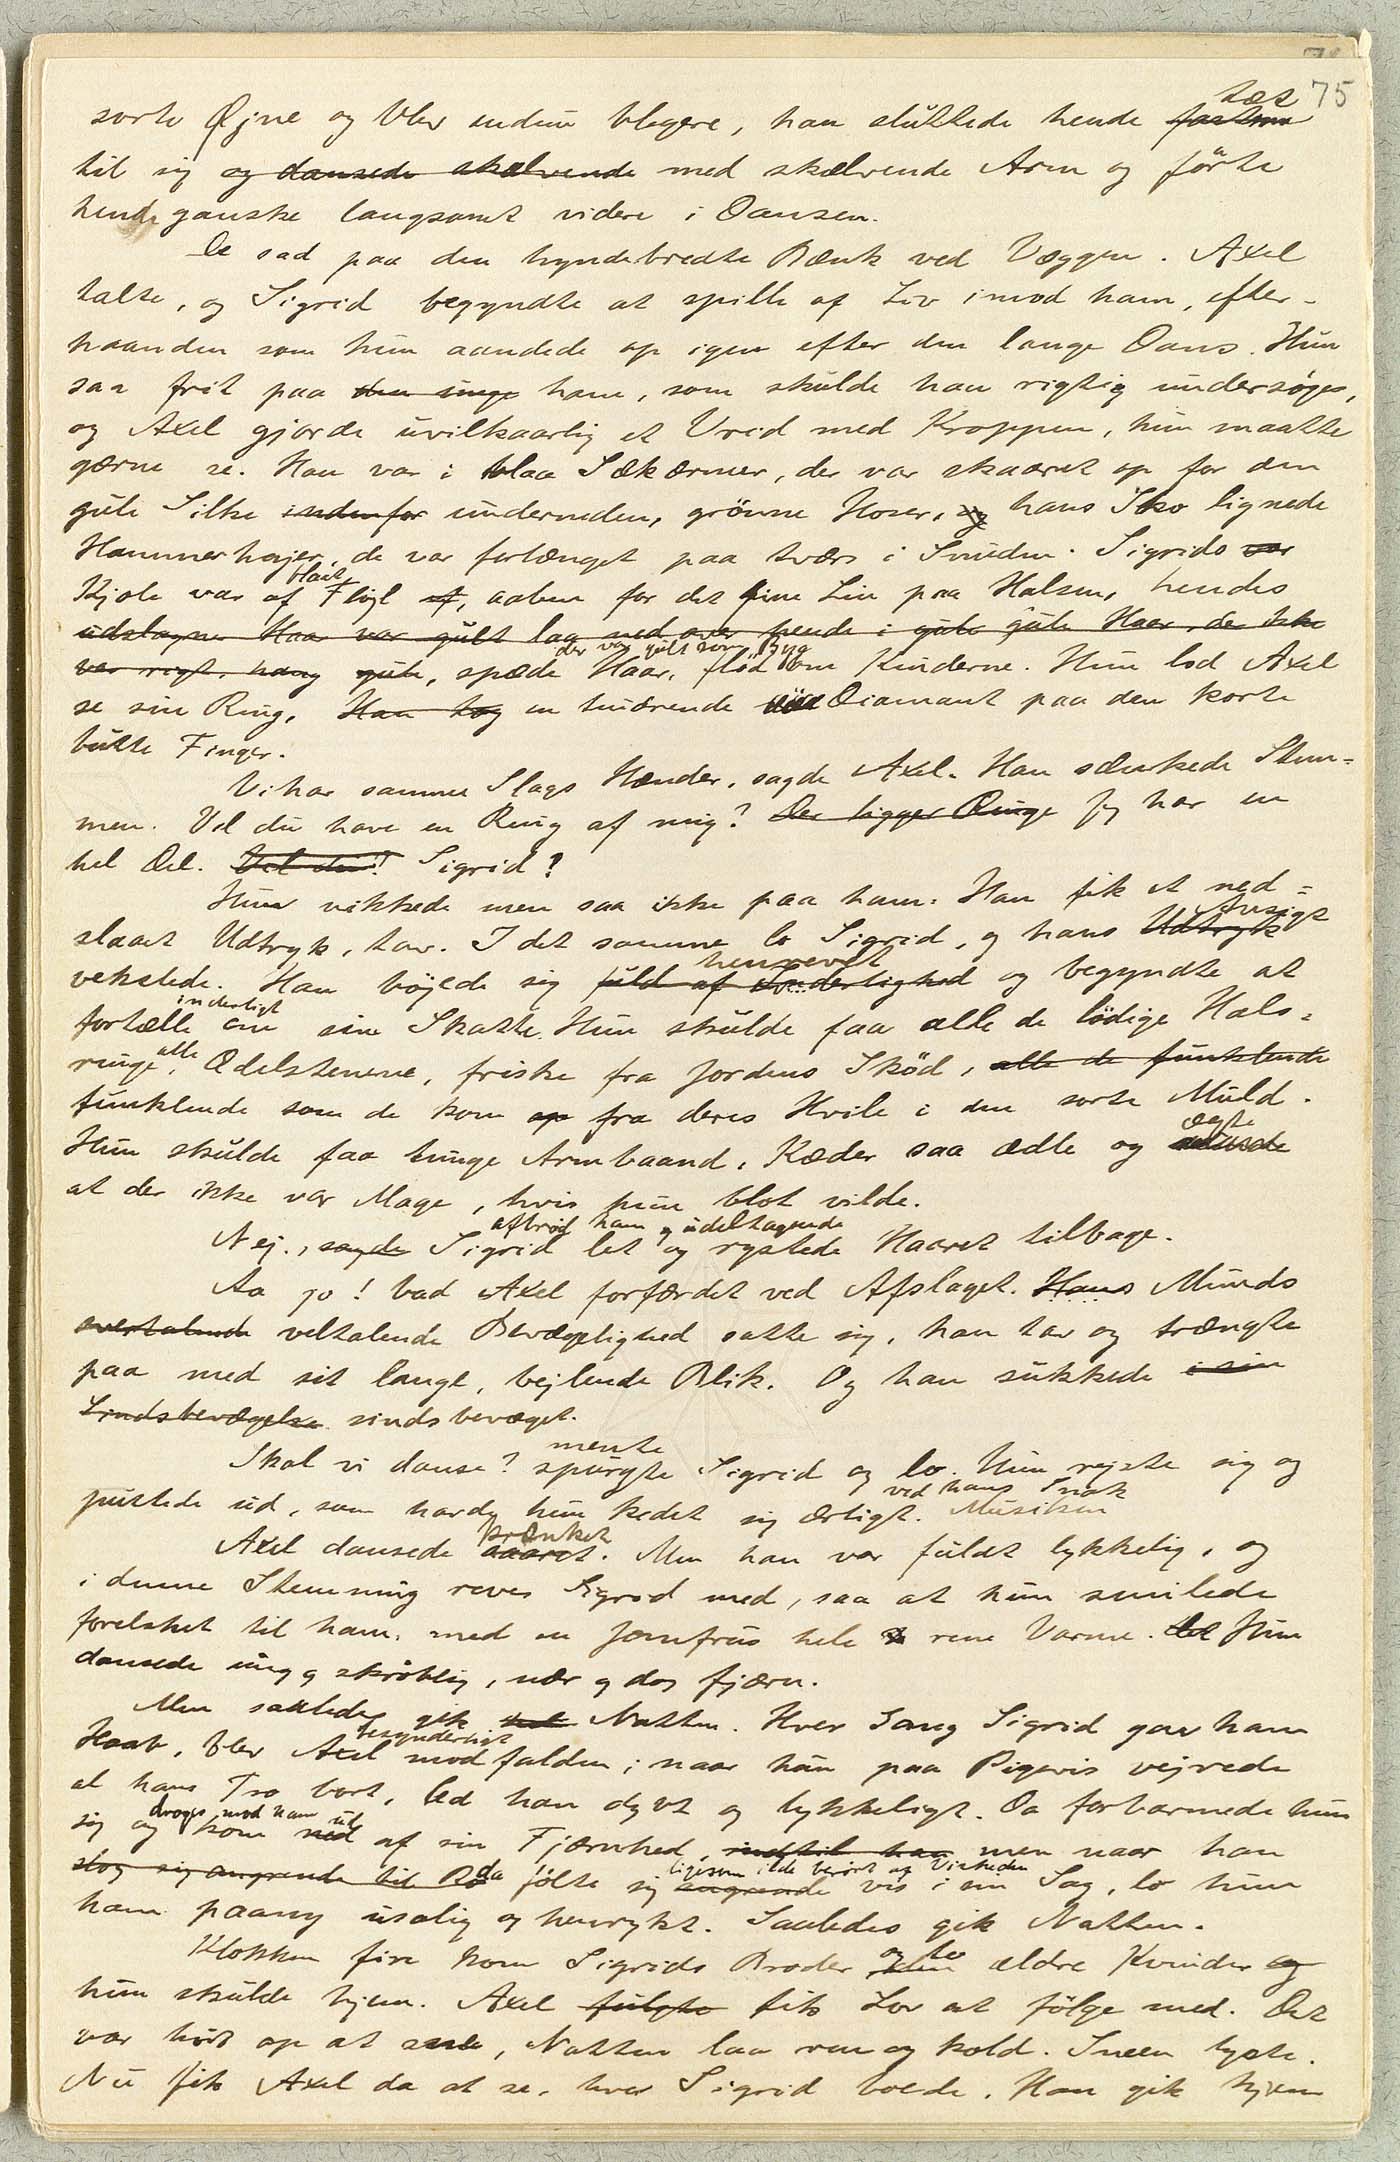 75
sorte Øjne og blev endnu blegere, han sluttede hende tæt
til sig og dansede skælvende med skælvende Arm og förte
hende ganske langsomt videre i Dansen.
De sad paa den hyndebredte Bænk ved Væggen. Axel
talte, og Sigrid begyndte at spille af Liv imod ham, efter-
haanden som hun aandede op igen efter den lange Dans. Hun
saa frit paa den unge ham, som skulde han rigtig undersøges,
og Axel gjorde uvilkaarlig et Vrid med Kroppen, hun maatte
gærne se. Han var i blaa Sækærmer, der var skaaret op for den
gule Silke indenfor underneden, grönne Hoser, og hans Sko lignede
Hammerhajer, de var forlænget paa tværs i Snuden. Sigrids var
Kjole var af blaat Fløjl af, aaben for det fine Lin paa Halsen, hendes
udslagne Haar var gult laa ned over hende i gule gule Haar, der ikke
var rigt, hang gule, spæde Haar, der var gult som Byg flöd om Kinderne. Hun lod Axel
se sin Ring, Han tog en luérende Diamant paa den korte
butte Finger.
Vi har samme Slags Hænder, sagde Axel. Han sænkede Stem=
men. Vil du have en Ring af mig? Der ligger Ringe Jeg har en
hel Del. Vil du? Sigrid?
Hun nikkede men saa ikke paa ham. Han fik et ned=
slaaet Udtryk, tav. I det samme lo Sigrid, og hans Udtryk Ansigt
vekslede. Han böjede sig fuld af Inderlighed henrevet og begyndte at
fortælle inderligt om sine Skatte. Hun skulde faa alle de lödige Hals=
ringe, alle Ædelstenene, friske fra Jordens Sköd, alle de funklende
funklende som de kom op fra deres Hvile i den sorte Muld.
Hun skulde faa tunge Armbaand, Kæder saa ædle og ægte
at der ikke var Mage, hvis hun blot vilde.
Nej, sagde afbrød Sigrid ham let og udeltagende og rystede Haaret tilbage.
Aa jo! bad Axel forfærdet ved Afslaget. Hans Munds
overtalende veltalende Bevægelighed satte sig, han tav og trængte
paa med sit lange, bejlende Blik. Og han sukkede i sin
Sindsbevægelse sindsbevæget.
Skal vi danse? spurgte mente Sigrid og lo. Hun rejste sig og
pustede ud, som havde hun kedet sig ærligt. ved hans Snak Musiken
Axel dansede saaret krænket. Men han var fuldt lykkelig, og
i denne Stemning reves Sigrid med, saa at hun smilede
forelsket til ham, med en Jomfrus hele rene Varme. Hun
dansede ung og skröbelig, nær og dog fjærn.
Men saaledes gik Natten. Hver Gang Sigrid gav ham
Haab, blev Axel besynderligt modfalden; naar hun paa Pigevis vejrede
al hans Tro bort, led han dybt og lykkeligt. Da forbarmede hun
sig og droges mod ham kom ned ud af sin Fjærnhed, indtil han men naar han
slog sig angrende til Ro da fölte sig angrende ligesom ilde berørt af Visheden vis i sin Sag, lo hun
ham paany usalig og henrykt. Saaledes gik Natten.
Klokken fire kom Sigrids Broder og to ældre Kvinder og
hun skulde hjem. Axel fulgte fik Lov at fölge med. Det
var hört op at sne, Natten laa ren og kold. Sneen lyste.
Nu fik Axel da at se, hvor Sigrid boede. Han gik hjem